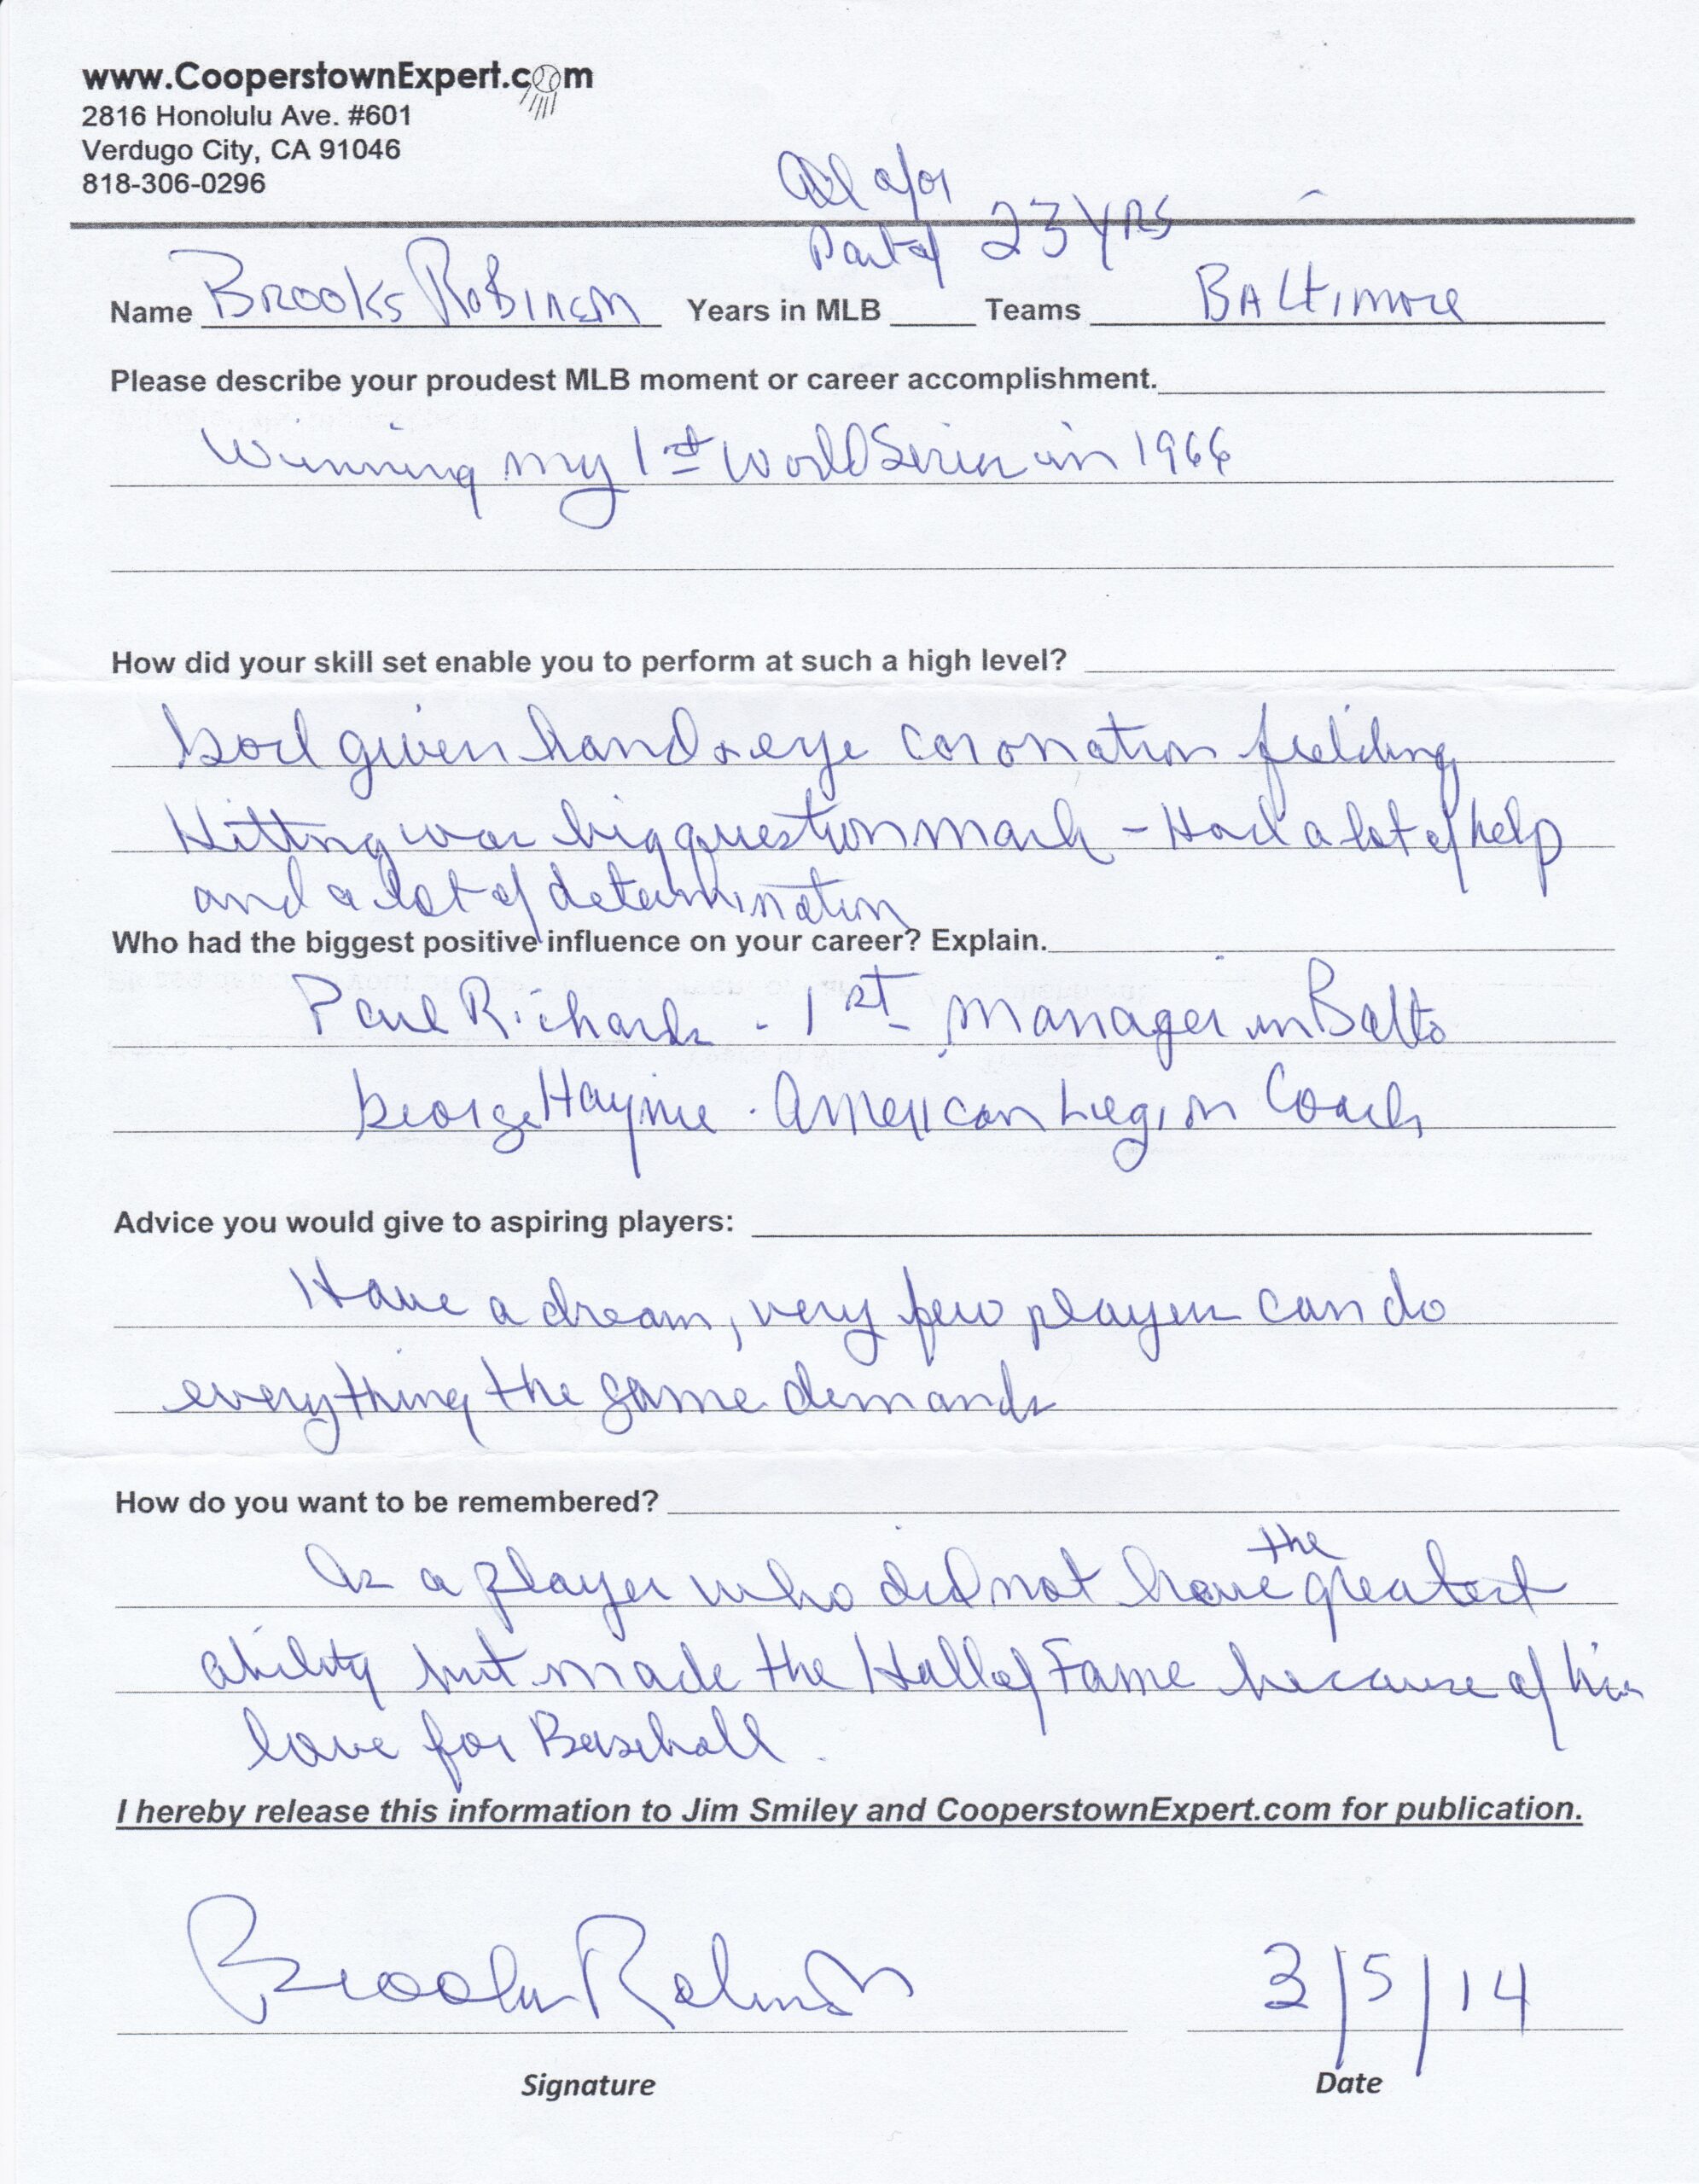 www.CooperstownExpert.com
2816 Honolulu Ave. #601
Verdugo City, CA 91046
818-306-0296
All or
Part of 23 YRS
Name Brooks Robinson Years in MLB ____ Teams Baltimore
Please describe your proudest MLB moment or career accomplishment.
Winning my 1st World Series in 1966
How did your skill set enable you to perform at such a high level?
God given hand & eye coronation fielding
Hitting was big question mark - Had a lot of help
and a lot of determination
Who had the biggest positive influence on your career? Explain.
Paul Richards - 1st manager in Balto
George Haynie - American Legion Coach
Advice you would give to aspiring players:
Have a dream, very few players can do
everything the game demands
How do you want to be remembered?
As a player who did not have the greatest
ability but made the Hall of Fame because of his
love for Baseball.
I hereby release this information to Jim Smiley and CooperstownExpert.com for publication.
Brooks Robinson
3/5/14
Signature Date